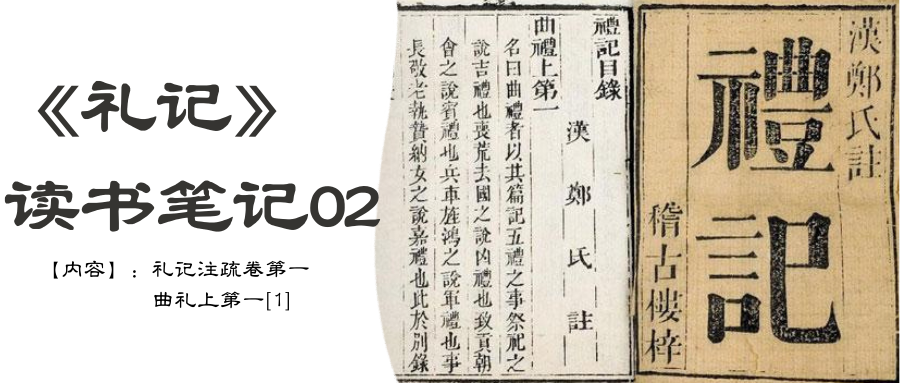 《礼记》
读书笔记02
【内容】：礼记注疏卷第一
曲礼上第一[1]
漢鄭氏註
禮記
稽古樓梓
禮記目錄
漢鄭氏註
曲禮上第一
名曰曲禮者以其篇記五禮之事祭祀之
說吉禮也喪荒去國之說凶禮也致貢朝
會之說賓禮也兵車旌鴻之說軍禮也事
長敬老執贄納女之說嘉禮也此於別錄